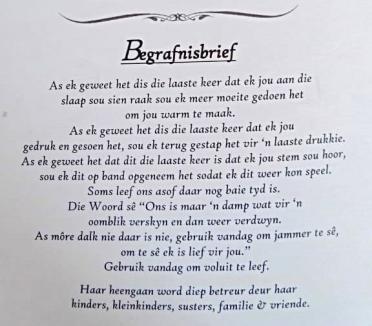 Begrafnisbrief
As ek geweet het dis die laaste keer dat ek jou aan die
slaap sou sien raak sou ek meer moeite gedoen het
om jou warm te maak.
As ek geweet het dis die laaste keer dat ek jou
gedruk en gesoen het, sou ek terug gestap het vir 'n laaste drukkie.
As ek geweet het dat dit die laaste keer is dat ek jou stem sou hoor,
sou ek dit op band opgeneem het sodat ek dit weer kon speel.
Soms leef ons asof daar nog baie tyd is.
Die Woord sê "Ons is maar 'n damp wat vir 'n
oomblik verskyn en dan weer verdwyn.
As môre dalk nie daar is nie, gebruik vandag om jammer te sê,
om te sê ek is lief vir jou."
Gebruik vandag om voluit te leef.
Haar heengaan word diep betreur deur haar
kinders, kleinkinders, susters, familie & vriende.